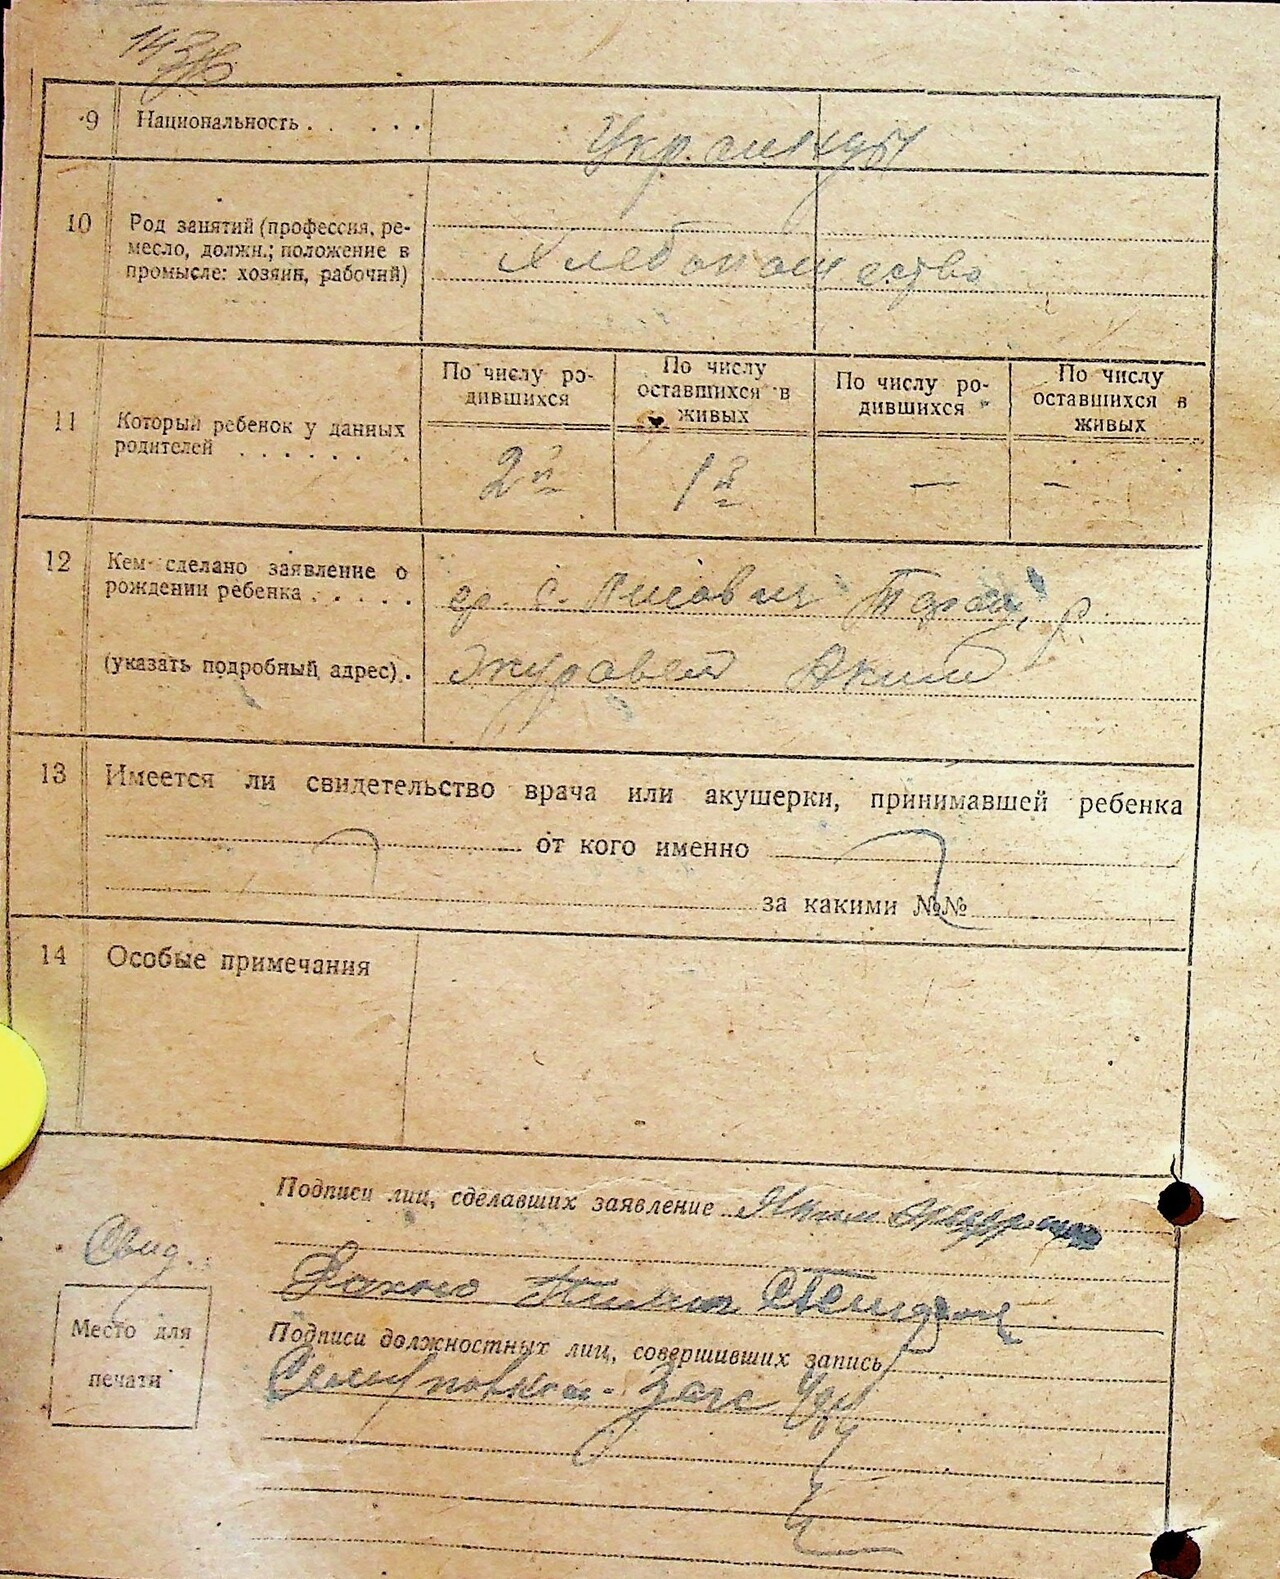 9 Национальность . . . . . .
Украинцы
10 Род занятий (профессия, ре-
месло, должн.; положение в
промысле: хозяин, рабочий)
Хлебопашество
11 Который ребенок у данных
родителей . . . . . . .
По числу ро-
дившихся
По числу
оставшихся в
живых
По числу ро-
дившихся
По числу
оставшихся в
живых
2й 1й — —
12 Кем сделано заявление о
рождении ребенка . . . . .
гр. с.
(указать подробный адрес) .
Журавель Аким
13 Имеется ли свидетельство врача или акушерки, принимавшей ребенка
от кого именно
за какими №№
14 Особые примечания
Подписи лиц, сделавших заявление Аким
Свид.
Место для
печати
Подписи должностных лиц, совершивших запись
Загс